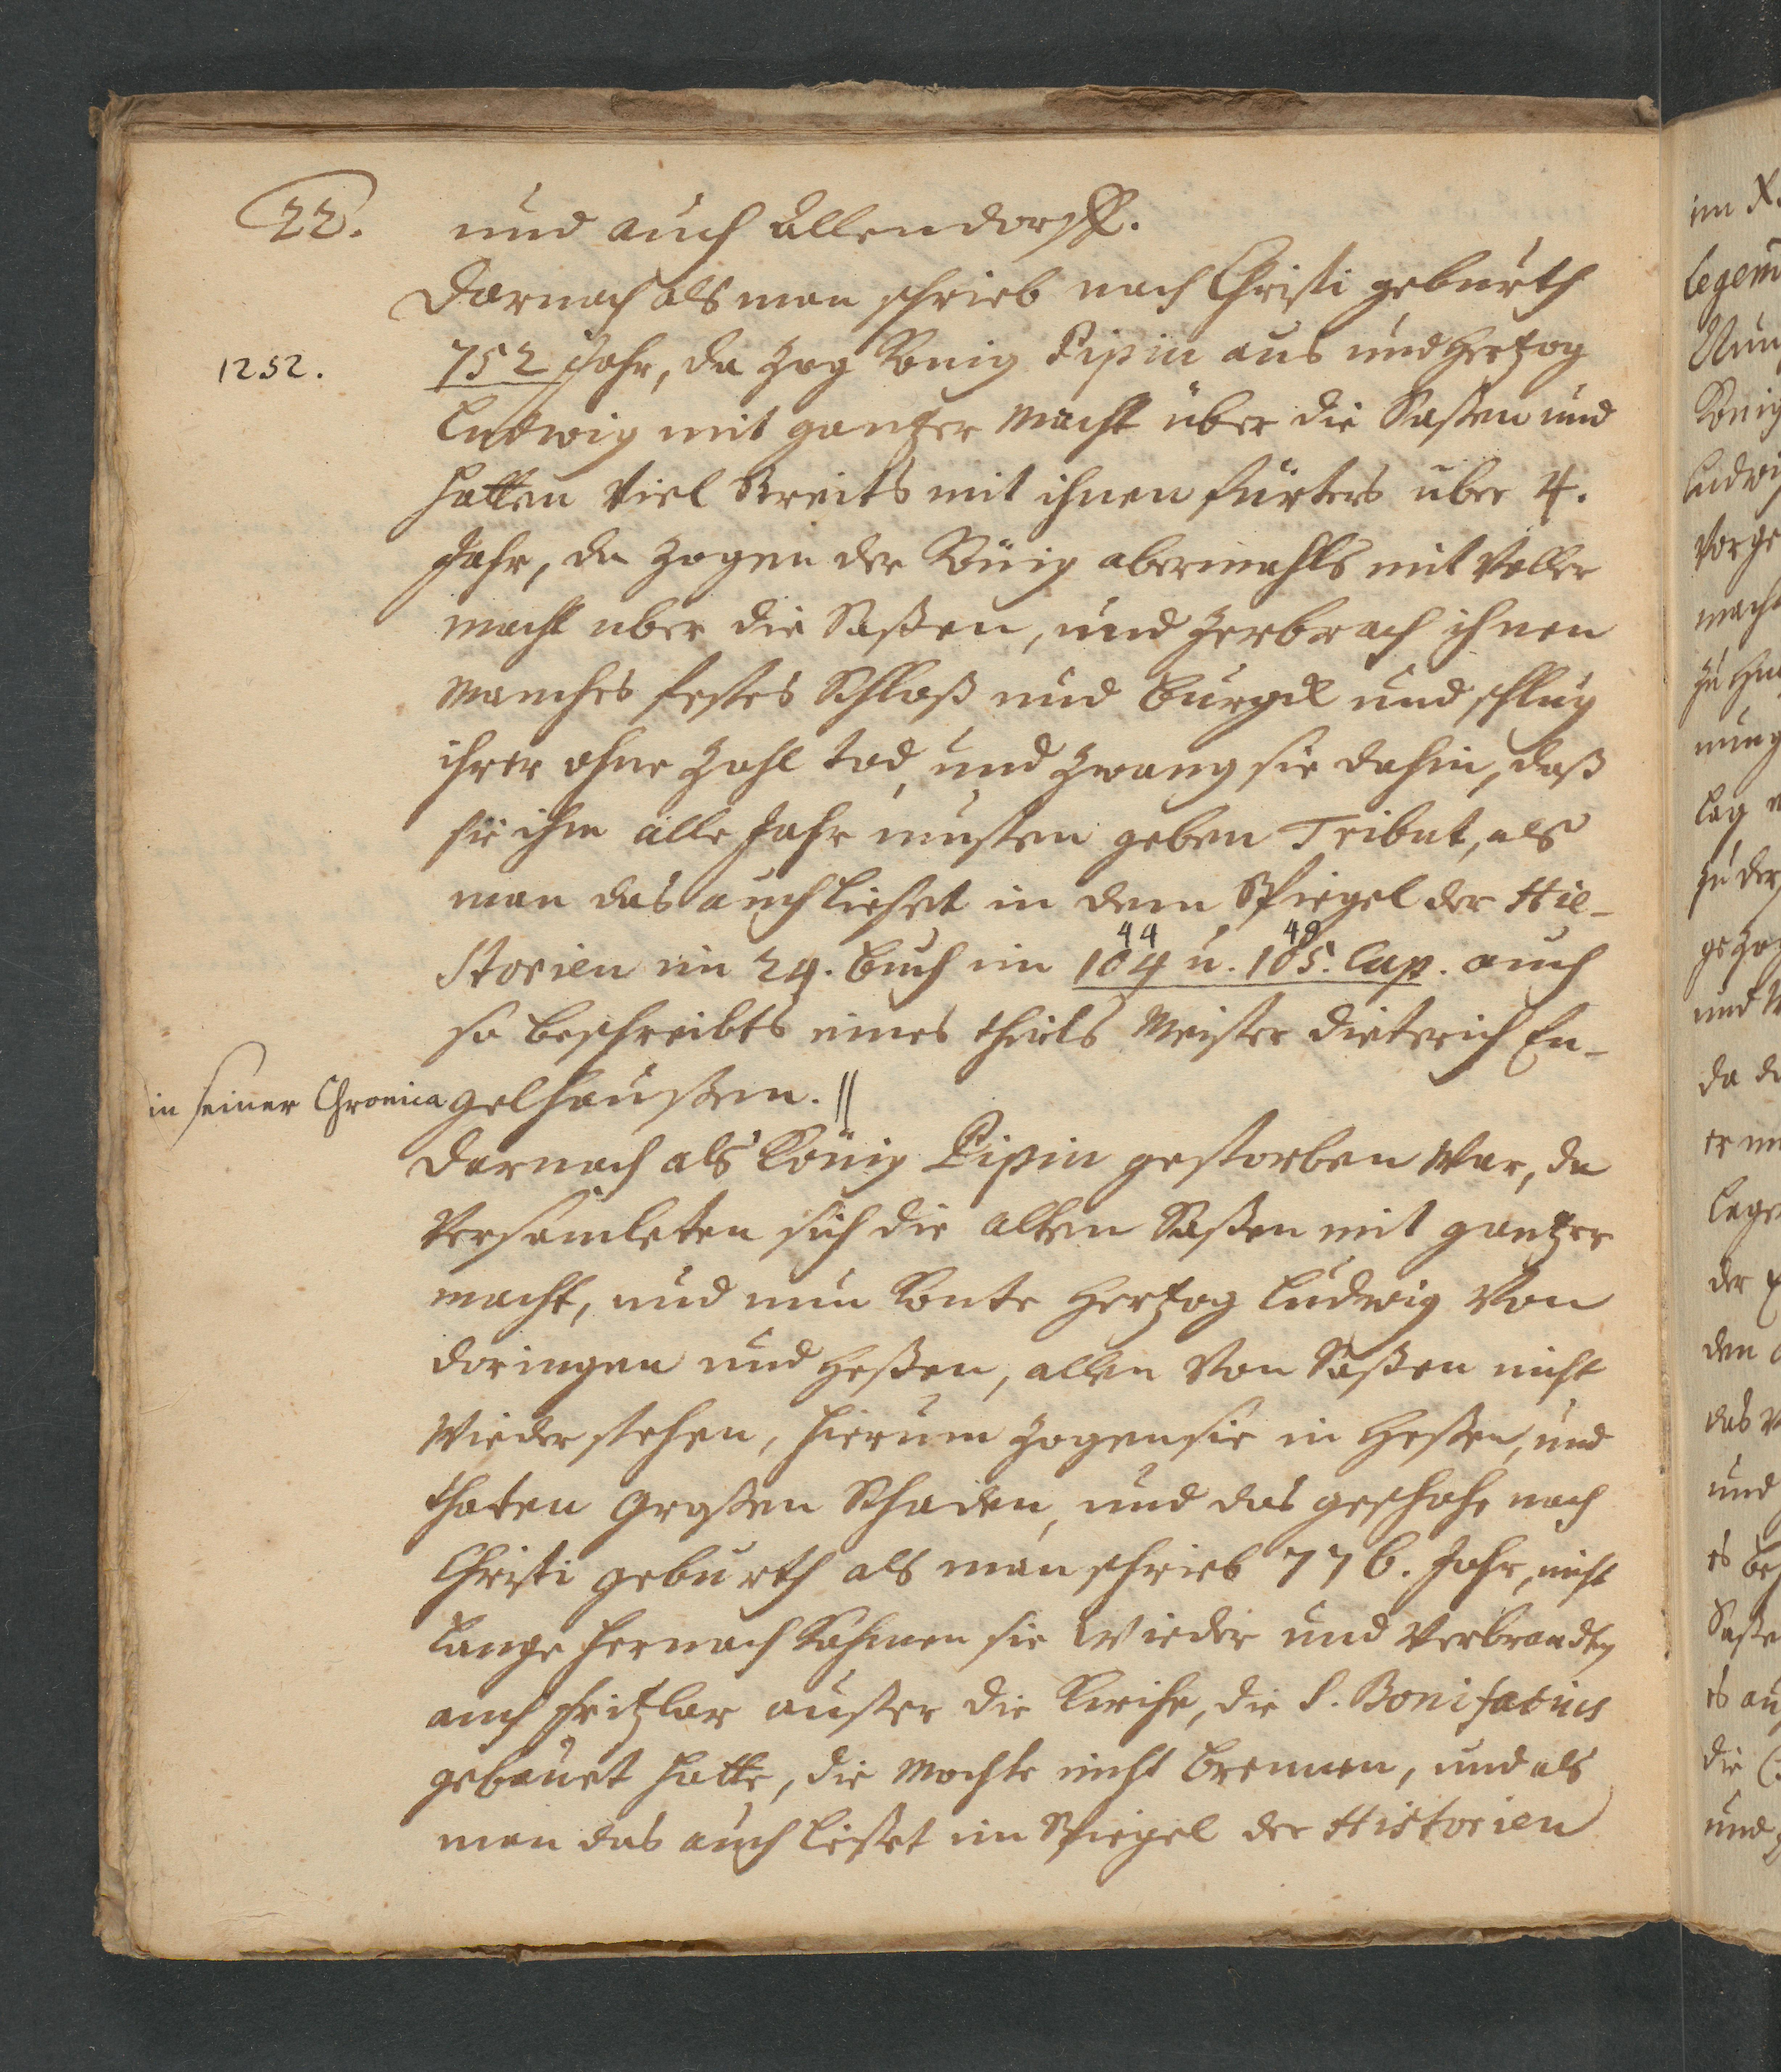 22.
und auch Allendorff.
Darnach als man schrieb nach Christi geburth
1252.
752 Jahr, da zog König Pipin aus und Hertzog
Ludwig mit gantzer Macht über die Saßen und
hatten viel Streits mit ihnen fürters über 4.
Jahr, da zogen der König abermahls mit voller
macht über die Saßen, und zerbrach ihnen
manches festes Schloß und Burgk und schlug
ihrer ohne Zahl tod, und zwang sie dahin, daß
sie ihm alle Jahr musten geben Tribut, als
man das auch lieset in dem Spiegel der His-
44 48
storien im 24. Buch im 104 u. 105. Cap. auch
so beschreibts eines theils Meister Dieterich En-
in seiner Chronica gelhaußen. ||
Darnach als König Pipin gestorben war, da
versamleten sich die alten Saßen mit gantzer
macht, und nun konte Hertzog Ludwig von
Doringen und Heßen, allen von Saßen nicht
wiederstehen, hierum zogen sie in Heßen, und
thaten großen Schaden, und das geschahe nach
Christi geburth als man schrieb 776. Jahr, nicht
lange hernach kahmen sie wieder und verbrandten
auch Fritzlar außer die Kirche, die S. Bonifacius
gebauet hatte, die mochte nicht brennen, und als
man das auch lieset im Spiegel der Historien